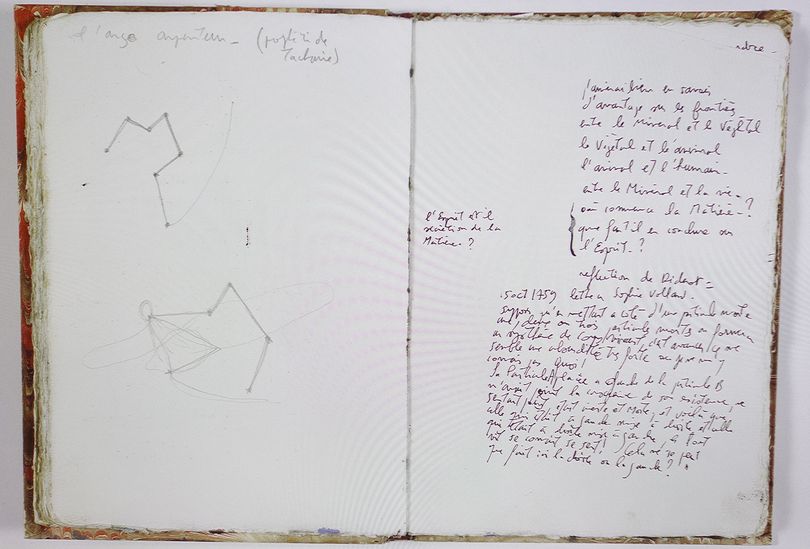 l'ange arpenteur_ (
Zacharie)
j'aimerai bien en savoir
d'avantage sur les frontières
entre le Mineral et le Végétal
le Végétal et l'animal
l'animal et l'humain_
entre le Mineral et la vie_
où commence la Matière_?
que faut il en conclure sur
l'Esprit_?
l'Esprit est il
secretion de la
Matière_?
reflection de Diderot_
15 oct 1759 lettre a Sophie Volland.
suppose qu'en mettant a côté d'une particule morte
une, deux ou trois particules mortes on formera
un système de corps vivant, c'est avancer, ce me
semble une absurdité très forte ou je ne m'y
connais pas. Quoi!
la Particule A placée a gauche de la particule B
n'avait point la conscience de son existence, ne
sentait point, était inerte et Morte, et voilà que,
celle qui était a gauche mise a droite et celle
qui était a droite mise a gauche, le tout
vit se connait se sent! Cela ne se peut
que fait ici la droite ou la gauche?